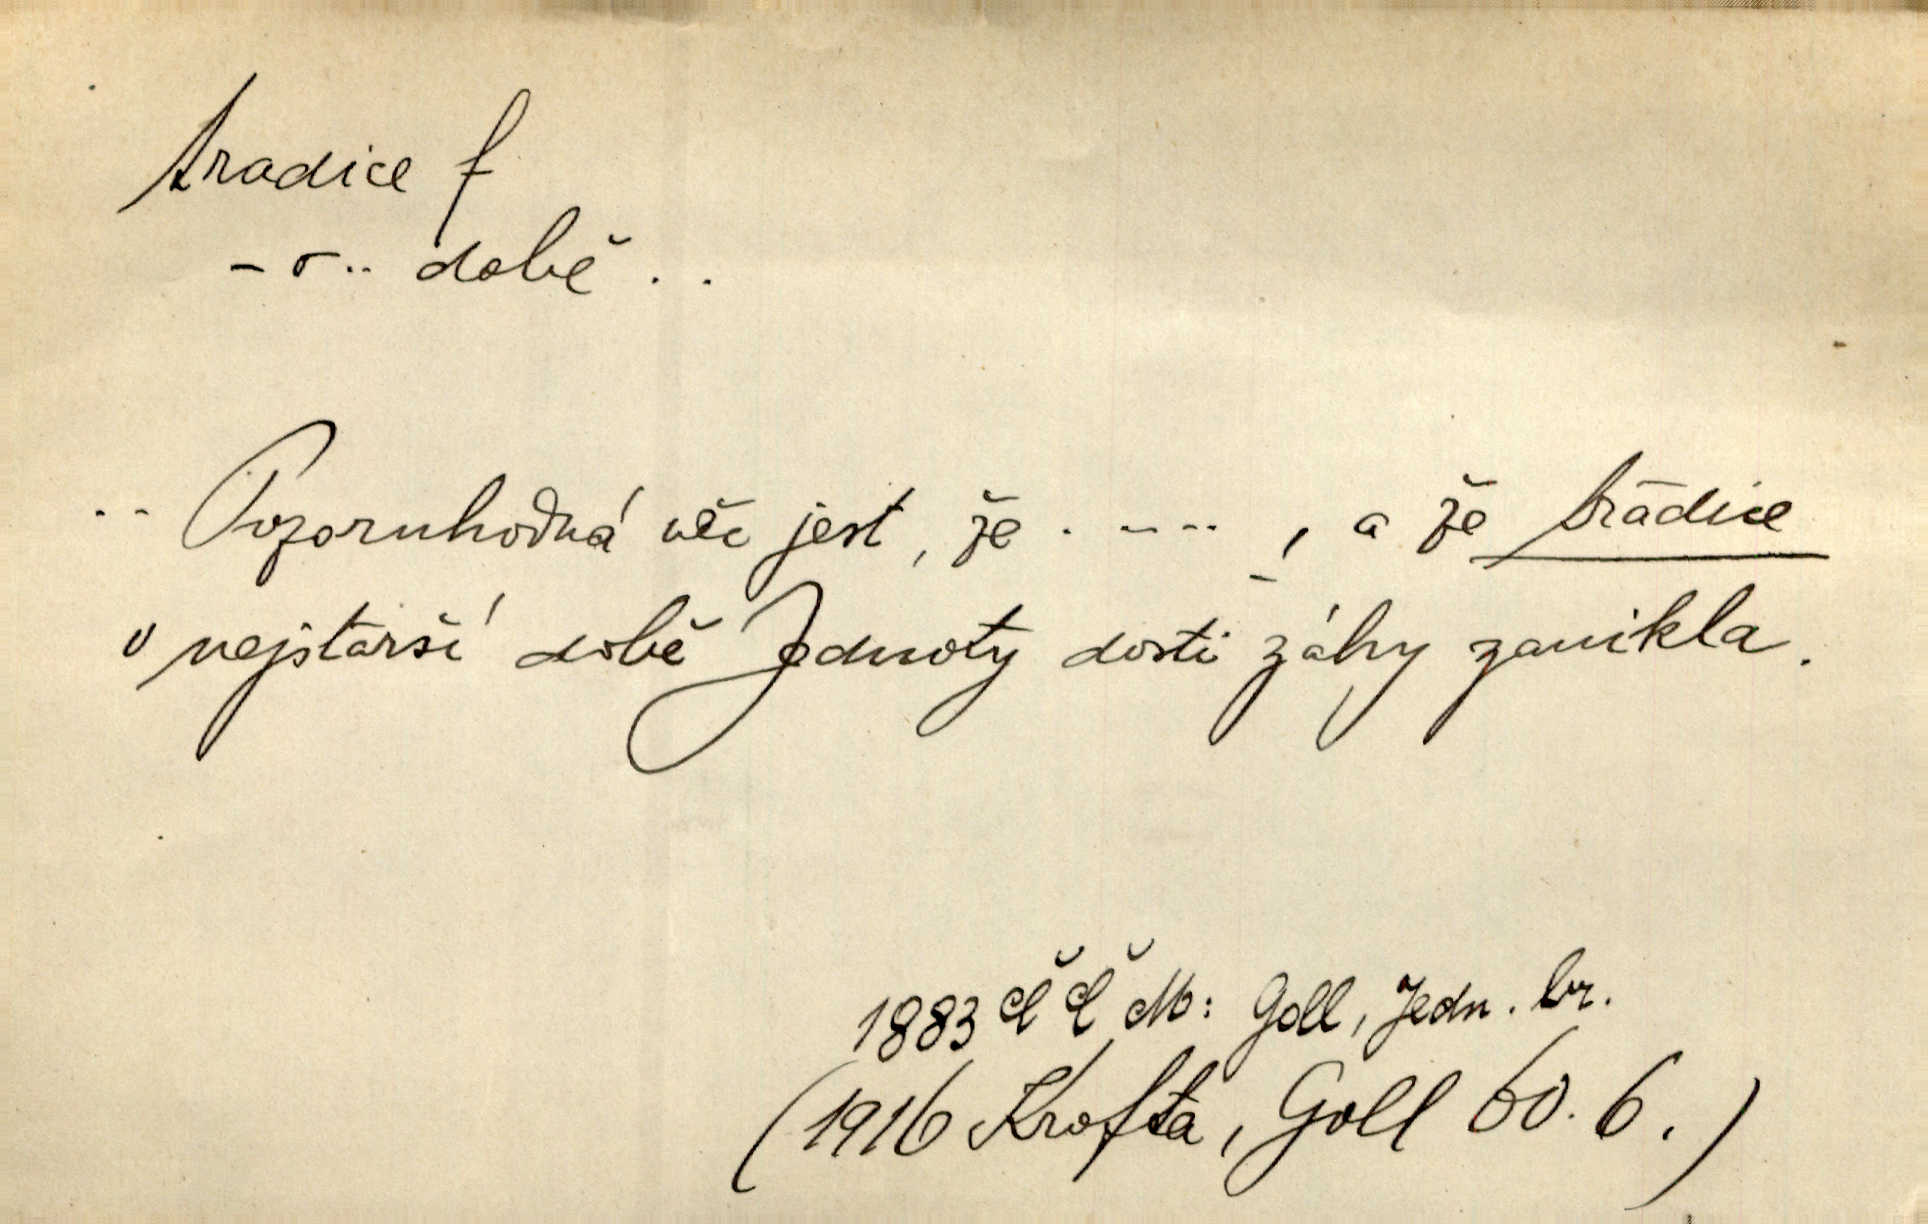 tradice f
– o .. době . .
.. Pozoruhodná věc jest, že . – – .. , a že tradice
o nejstarší době Jednoty dosti záhy zanikla.
1883 ČČM: Goll, Jedn. br.
(1916 Krofta, Goll 60. 6.)